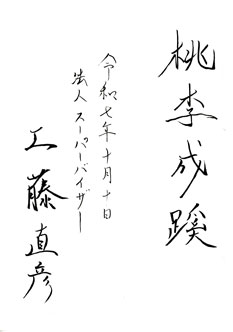 桃李成蹊
令和七年十月十日
法人スーパーバイザー
工藤直彦